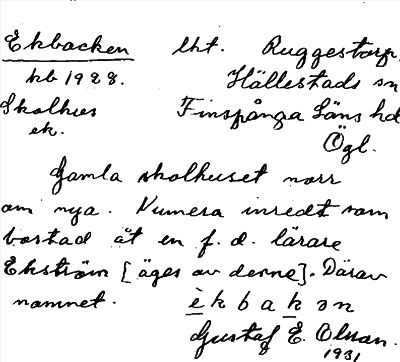 Ekbacken lht. Ruggestorp,
kb 1928. Hällestads sn
Skolhus Finspånga Läns hd
ek. Ögl.
Gamla skolhuset norr
om nya. Numera inredt som
bostad åt en f. d. lärare
Ekström [äges av denne]. Därav
namnet. è k b a k ən
Gustaf E. Olson.
1931